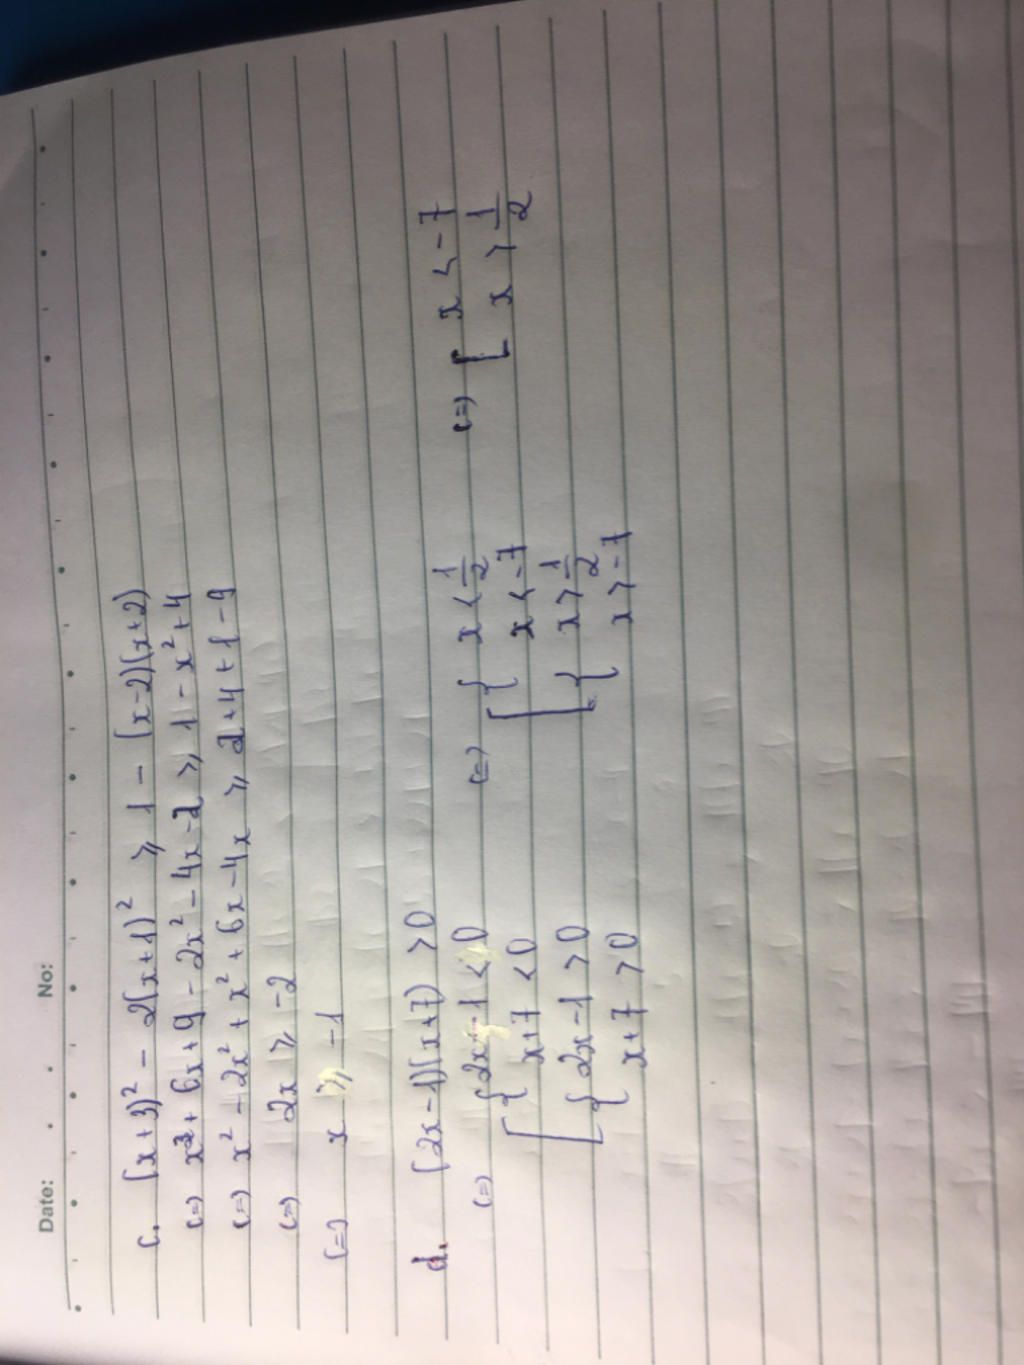 Date: No:
c. (x+3)² - 2(x+1)² ⩾ 1 - (x-2)(x+2)
(=) x² + 6x + 9 - 2x² - 4x - 2 ⩾ 1 - x² + 4
(=) x² - 2x² + x² + 6x - 4x ⩾ 2 + 4 + 1 - 9
(=) 2x ⩾ -2
(=) x ⩾ -1
d. (2x-1)(x+7) > 0
(=) [ { 2x - 1 < 0 (=) [ { x < 1/2 (=) [ x < -7
x+7 < 0 x < -7 x > 1/2
{ 2x - 1 > 0 { x > 1/2
x+7 > 0 x > -7